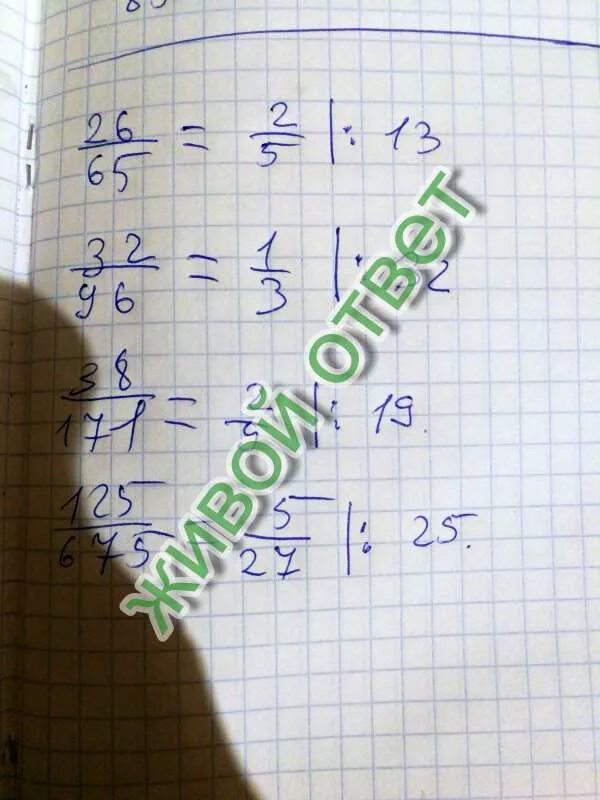 26/65 = 2/5 |: 13
32/96 = 1/3 |: 32
38/171 = 2/9 |: 19.
125/675 = 5/27 |: 25.
ЖИВОЙ ОТВЕТ